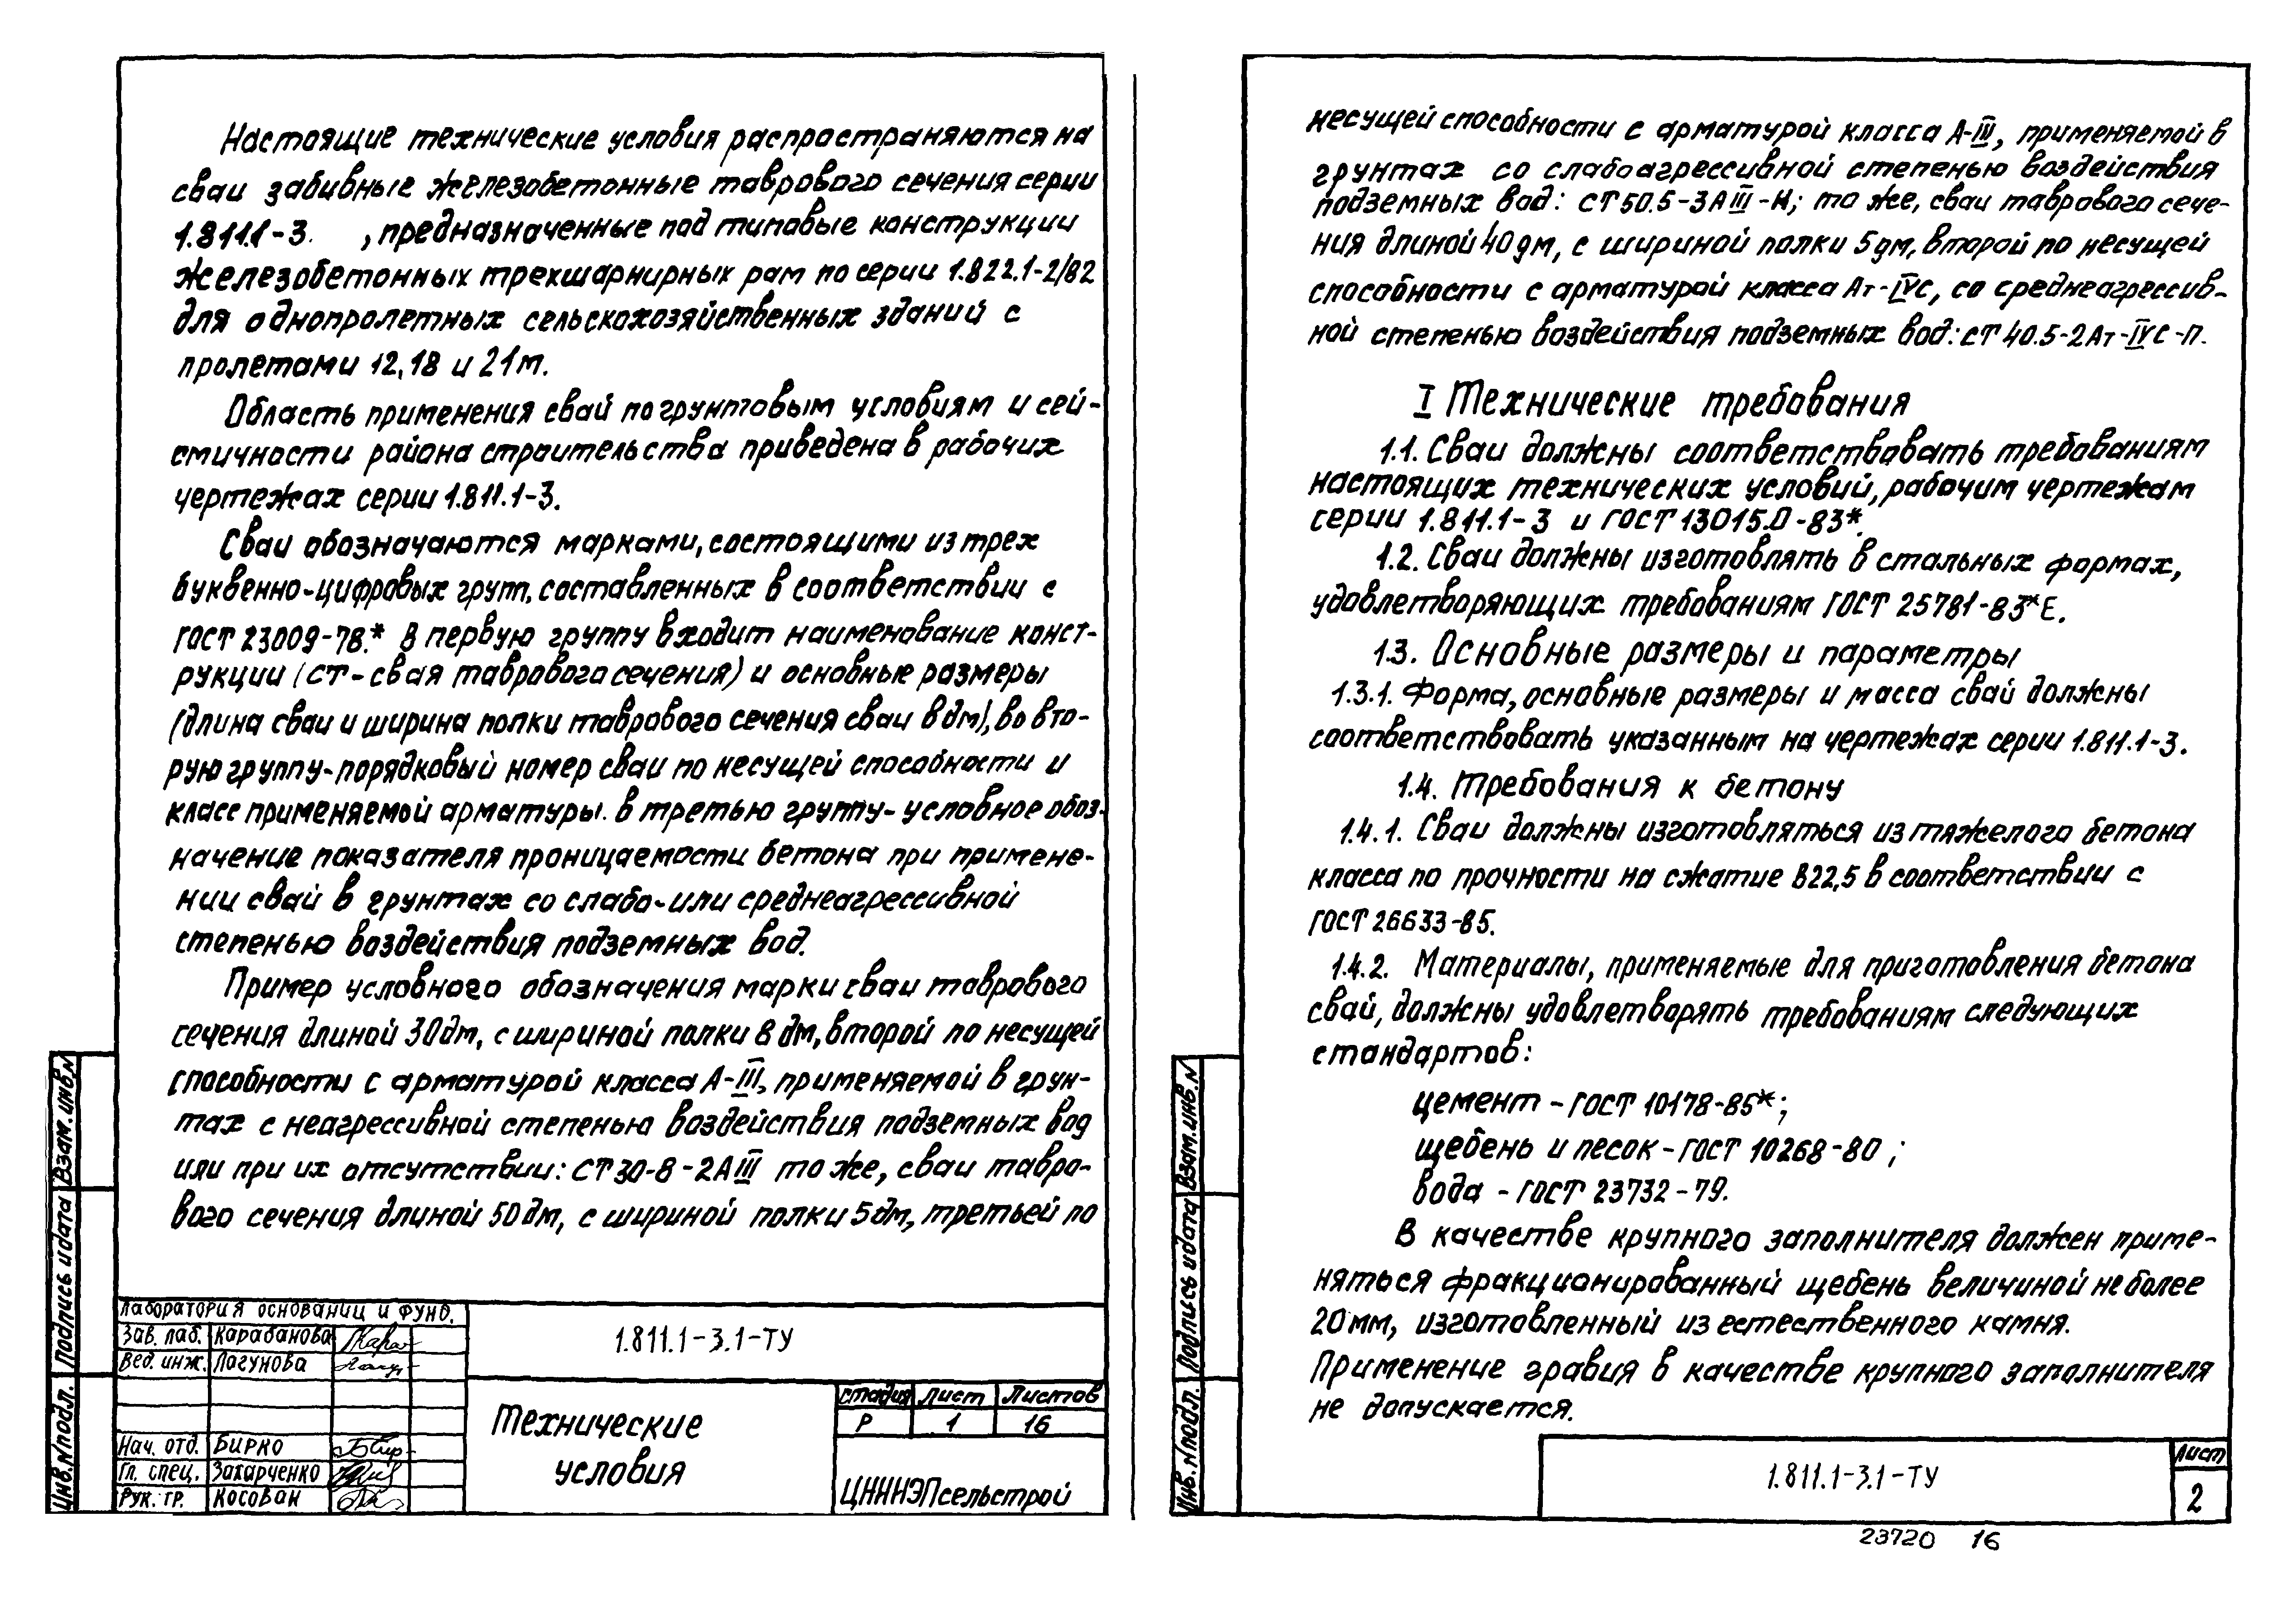 Настоящие технические условия распространяются на
сваи забивные железобетонные таврового сечения серии
1.811.1-3. , предназначенные под типовые конструкции
железобетонных трехшарнирных рам по серии 1.822.1-2/82
для однопролетных сельскохозяйственных зданий с
пролетами 12,18 и 21м.
Область применения свай по грунтовым условиям и сей-
смичности района строительства приведена в рабочих
чертежах серии 1.811.1-3.
Сваи обозначаются марками, состоящими из трех
буквенно-цифровых групп, составленных в соответствии с
ГОСТ 23009-78.* В первую группу входит наименование конст-
рукции (СТ-свая таврового сечения) и основные размеры
(длина сваи и ширина полки таврового сечения сваи в дм), во вто-
рую группу-порядковый номер сваи по несущей способности и
класс применяемой арматуры. в третью группу- условное обоз-
начение показателя проницаемости бетона при примене-
нии свай в грунтах со слабо-или среднеагрессивной
степенью воздействия подземных вод.
Пример условного обозначения марки сваи таврового
сечения длиной 30дм, с шириной полки 8 дм, второй по несущей
способности с арматурой класса А-III, применяемой в грун-
тах с неагрессивной степенью воздействия подземных вод
или при их отсутствии: СТ 30-8-2АIII то же, сваи тавро-
вого сечения длиной 50дм, с шириной полки 5дм, третьей по
Лаборатория основаниц и фунд.
Зав. лаб. Карабанова
Вед. инж. Лагунова
Нач. отд. Бирко
Гл. спец. Захарченко
Рук. гр. Косован
1.811.1-3.1-ТУ
Технические
условия
стадия Лист Листов
Р 1 16
ЦНИИЭПсельстрой
Взам. инв.N
Подпись и дата
Инв.N подл.
несущей способности с арматурой класса А-III, применяемой в
грунтах со слабоагрессивной степенью воздействия
подземных вод: СТ 50.5-3АIII-Н; то же, сваи таврового сече-
ния длиной 40дм, с шириной полки 5дм, второй по несущей
способности с арматурой класса Ат-IVС, со среднеагрессив-
ной степенью воздействия подземных вод: СТ 40.5-2Ат-IVС-П.
I Технические требования
1.1. Сваи должны соответствовать требованиям
настоящих технических условий, рабочим чертежам
серии 1.811.1-3 и ГОСТ 13015.0-83*.
1.2. Сваи должны изготовлять в стальных формах,
удовлетворяющих требованиям ГОСТ 25781-83*Е.
1.3. Основные размеры и параметры
1.3.1. Форма, основные размеры и масса свай должны
соответствовать указанным на чертежах серии 1.811.1-3.
1.4. Требования к бетону
1.4.1. Сваи должны изготовляться из тяжелого бетона
класса по прочности на сжатие В22,5 в соответствии с
ГОСТ 26633-85.
1.4.2. Материалы, применяемые для приготовления бетона
свай, должны удовлетворять требованиям следующих
стандартов:
цемент - ГОСТ 10178-85*;
щебень и песок - ГОСТ 10268-80 ;
вода - ГОСТ 23732-79.
В качестве крупного заполнителя должен приме-
няться фракционированный щебень величиной не более
20мм, изготовленный из естественного камня.
Применение гравия в качестве крупного заполнителя
не допускается.
Взам.инв.N
Подпись и дата
Инв.N подл.
1.811.1-3.1-ТУ
Лист
2
23720 16